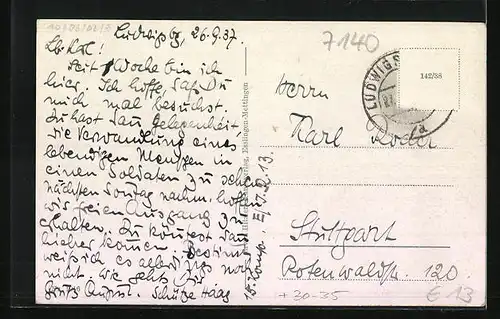 Ludwigsbg, 26.9.37.
Lb. Karl!
Seit 1 Woche bin ich
hier. Ich hoffe, daß Du
mich mal besuchst.
Du hast dann Gelegenheit
die Verwandlung eines
lebendigen Menschen in
einen Soldaten zu sehen
nächsten Sonntag nachm. hoffen
wir freien Ausgang zu
erhalten. Da könntest dann
hierher kommen. Bestimmt
weiß ich es allerdings noch
nicht. Wie gehts Dir
Gruß August.
Schütze Haag
15. Komp.
7140
LUDWIGS
142/38
Herrn
Karl
Stuttgart
Rotenwaldstr. 120.
+ 30-35
E 13
Esslingen-Mettingen